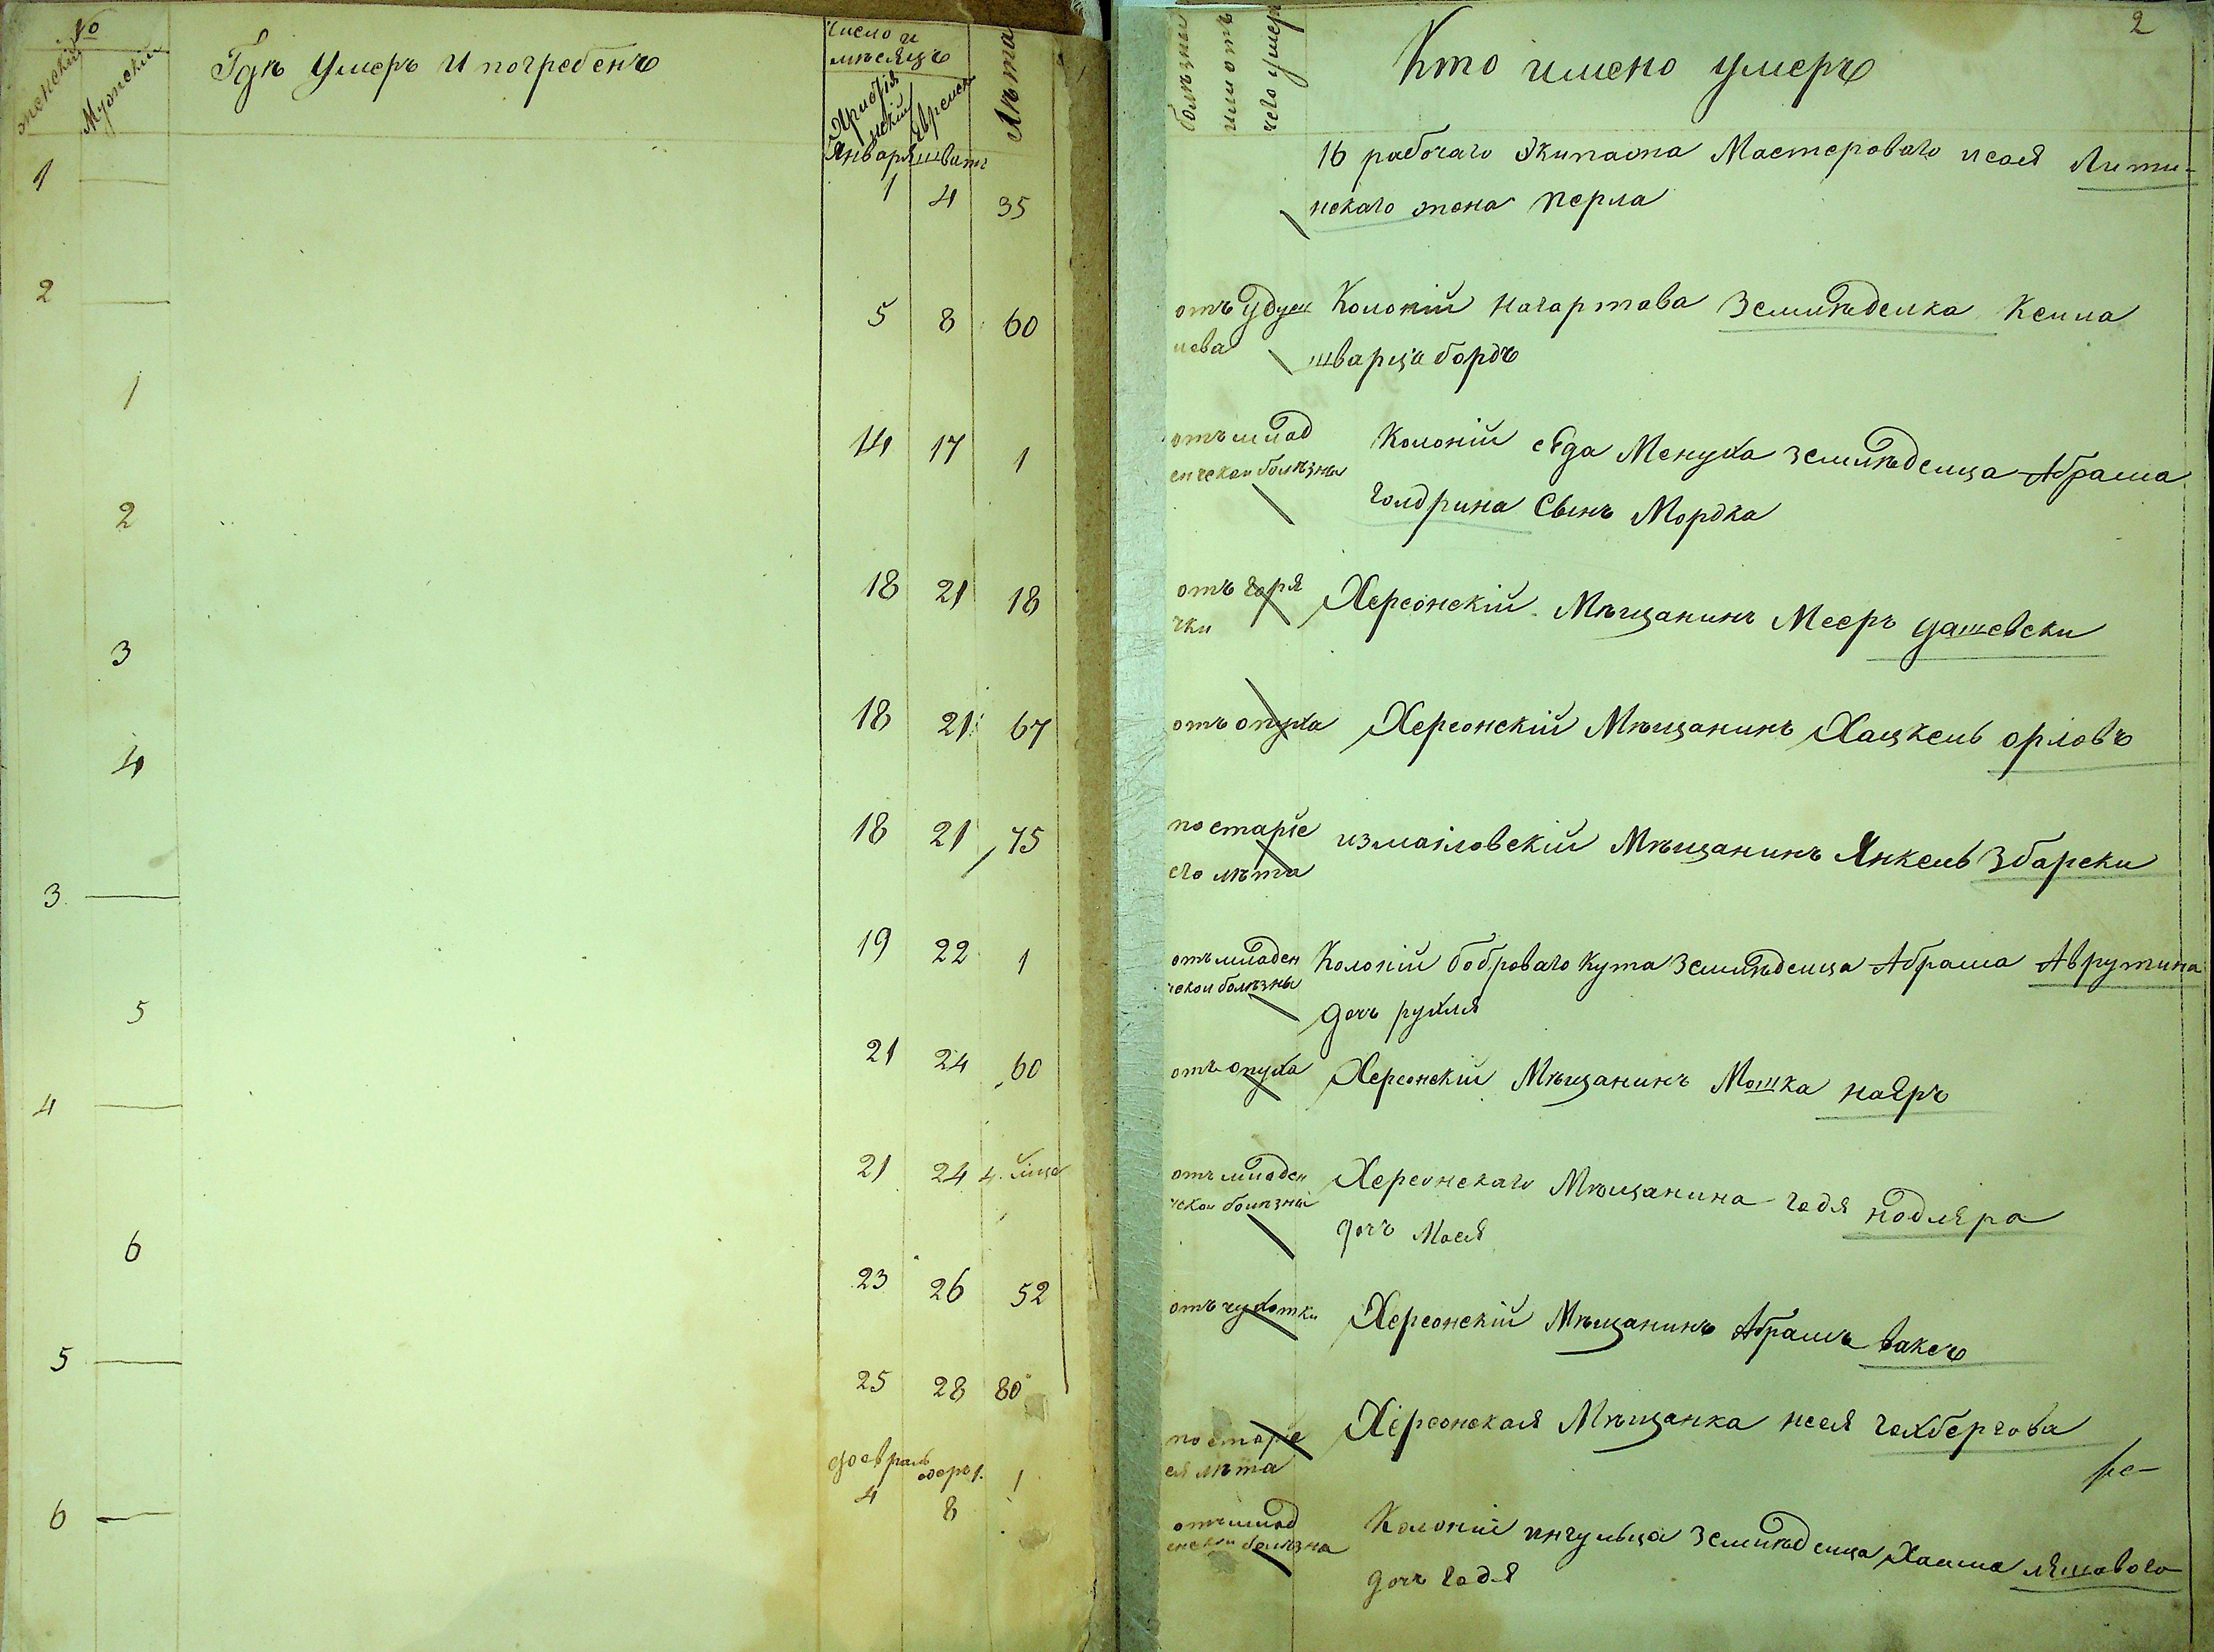 №
женскій
Мужескій
Гдѣ умеръ и погребенъ
Число и
мѣсяцъ
Христія
нскій
Еврейск
Лѣта
Января шватъ
1
1 4 35
2
5 8 60
1
14 17 1
2
18 21 18
3
18 21 67
4
18 21 75
3
19 22 1
5
21 24 60
4
21 24 4.
6
23 26 52
5
25 28 80
февраль
адеръ 1.
6
4 8 1
2
болѣзни
или отъ
чего умеръ
Кто имено умеръ
16 рабочаго Экипажа Мастероваго исаія Лити-
нскаго жена перла
отъ удуш
лева
Колоніи нагартава Землѣделка Кейла
шварцабордъ
отъ млад
енческои болѣзны
Колоніи сѣда Менуха землѣделца Абрама
голдрина Сынъ Мордка
отъ горя
чки
Херсонскій Мѣщанинъ Мееръ дашевски
отъ опуха
Херсонскій Мѣщанинъ Хацкель орловъ
по старіе
его лѣта
измаиловскій Мѣщанинъ Янкель Збарски
отъ младен
ческои болѣзны
Колоніи боброваго кута землѣделца Абрама Аврутина
дочь рухля
отъ опуха
Херсонскій Мѣщанинъ Мошка наяръ
отъ младен
ческои болѣзны
Херсонскаго Мѣщанина годя нодляра
дочъ Мася
отъ чухотки
Херсонскій Мѣщанинъ Абрамъ ваксъ
по старіе
ея лѣта
Херсонская Мѣщанка неся гехбергова
отъ млад
енскои болѣзна
Колоніи ингульца землѣделца Хаима ляшавого
дочъ годя